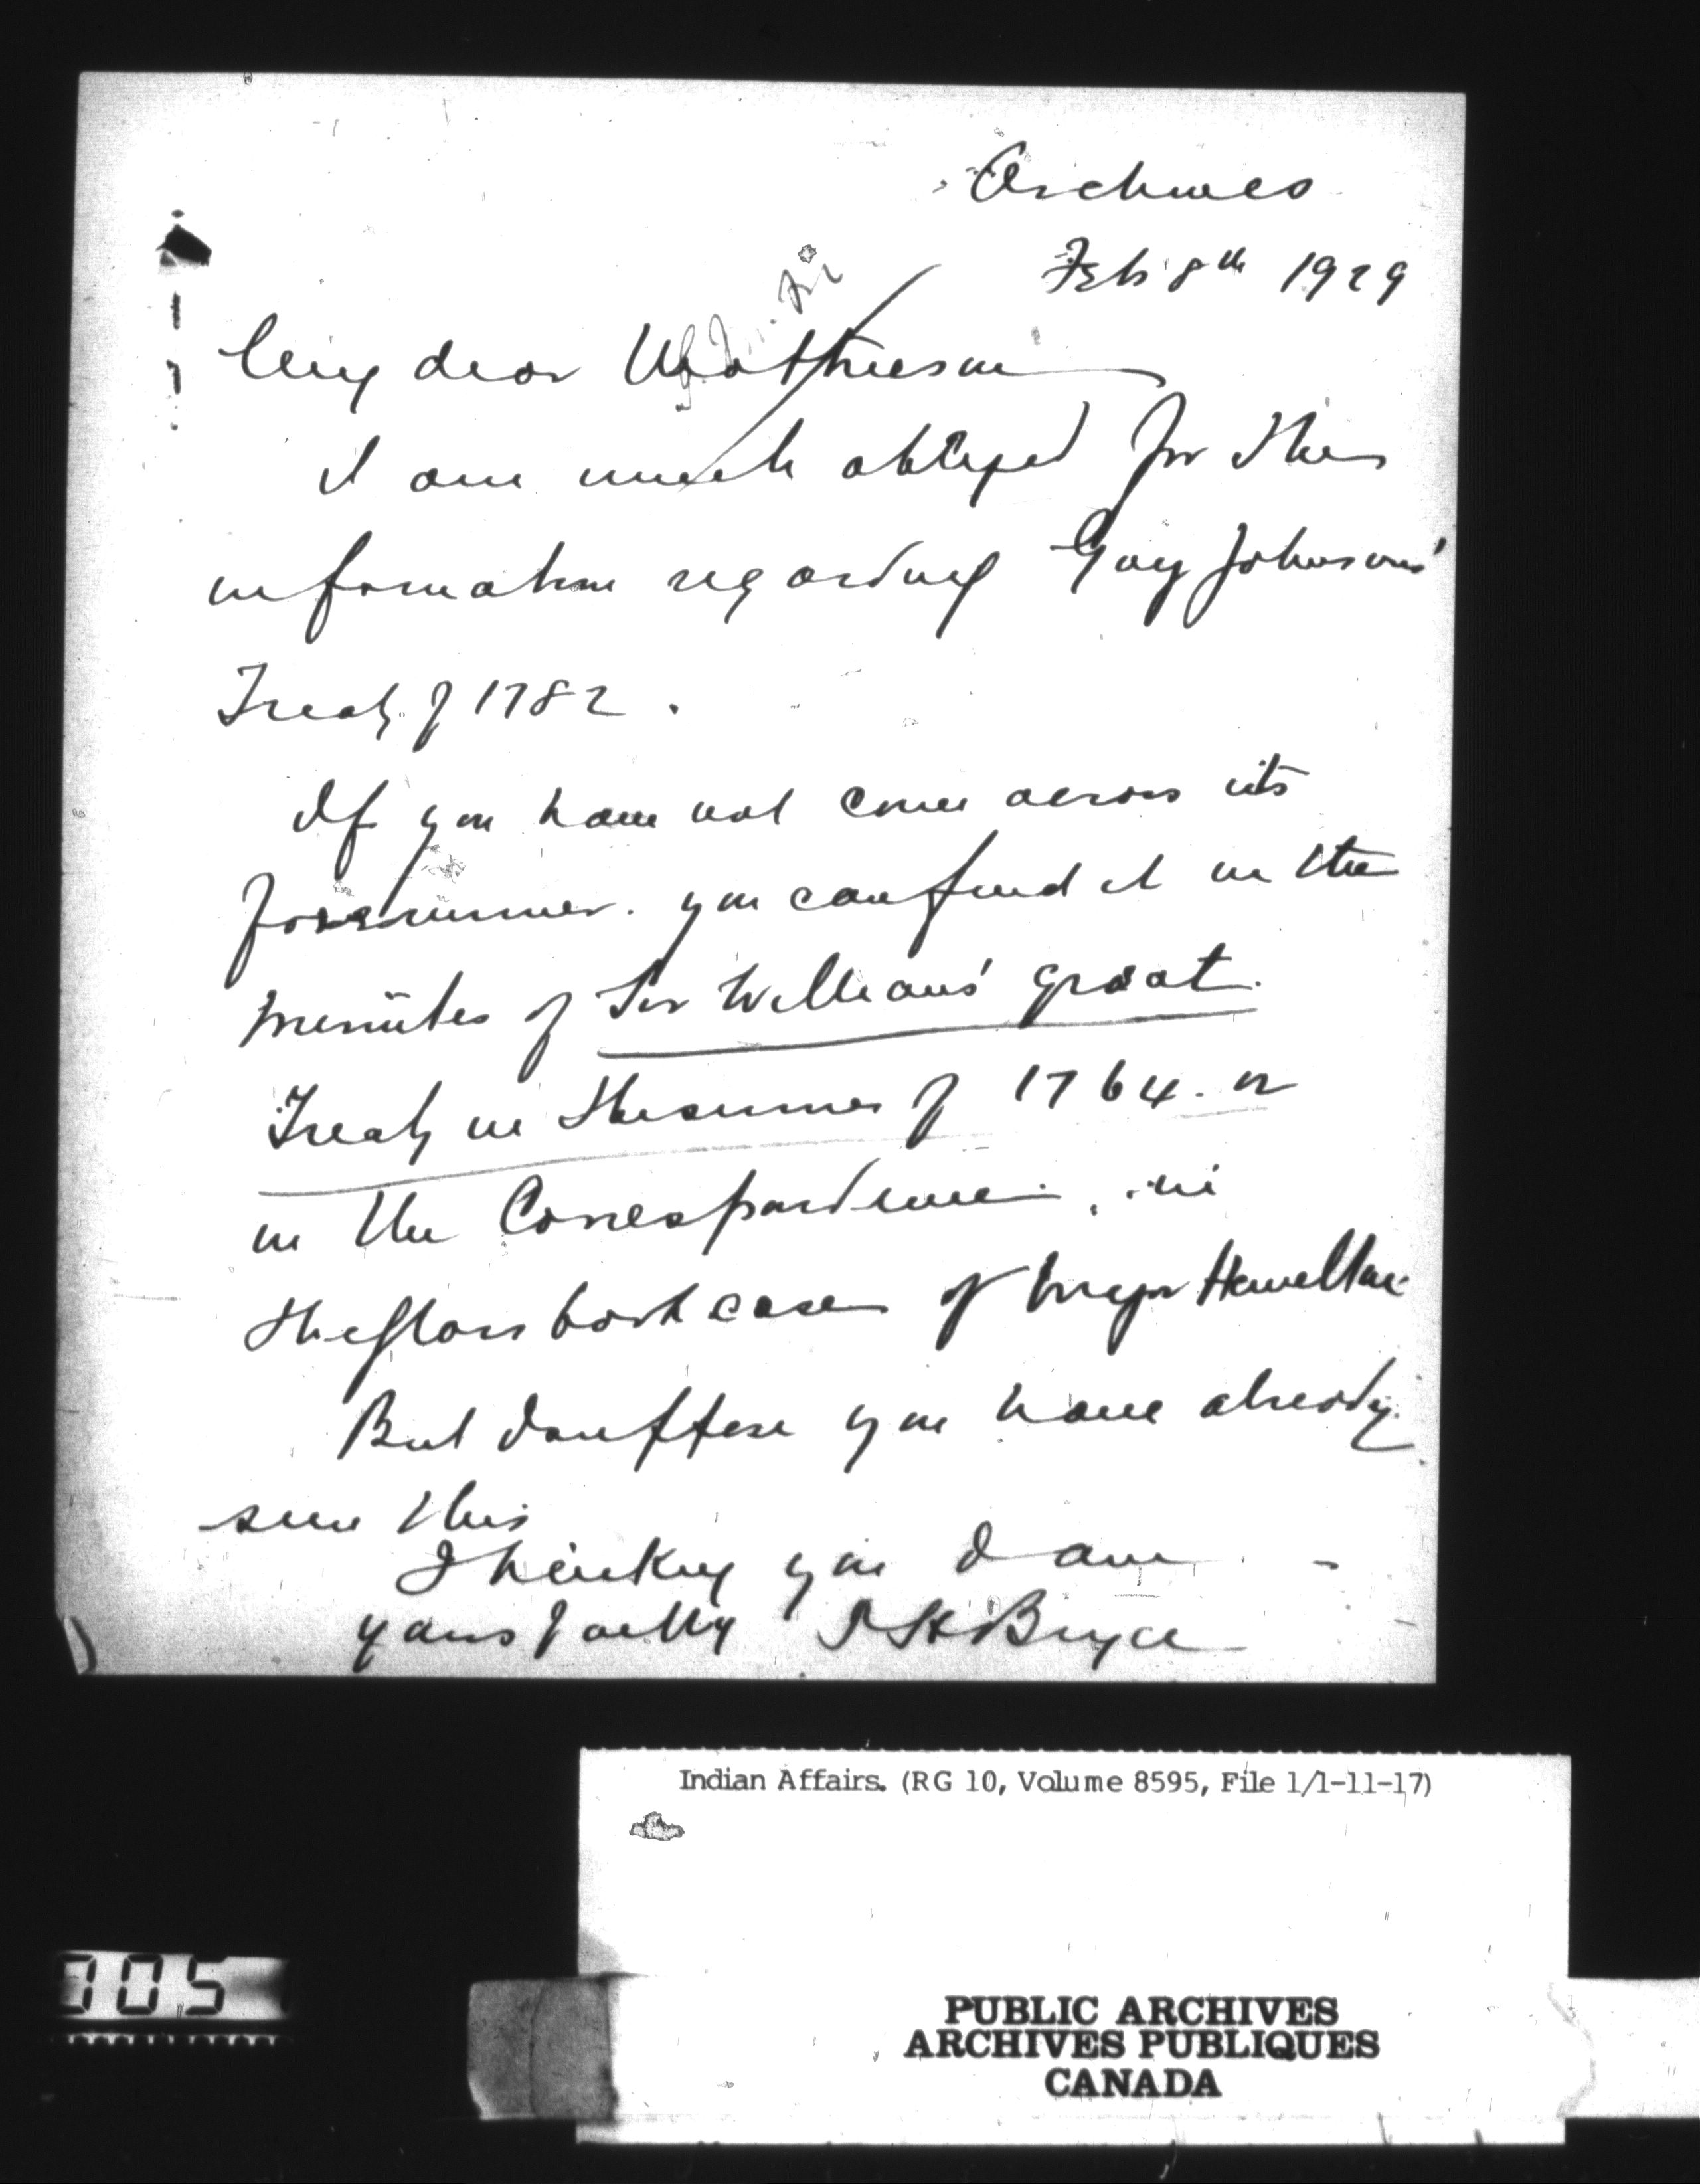 Archives
Feb 8th 1929
My dear Matheson
I am much obliged for the
information regarding Guy Johnson's
Treaty of 1782.
If you have not come across its
forerunner. you can find it in the
minutes of Sir William's great
Treaty in the summer of 1764. or
in the Correspondence, in
the glass book case of Major Hamilton
But I suppose you have already
seen this
Thanking you I am -
yours faithfy P H Bryce
Indian Affairs. (RG 10, Volume 8595, File 1/1-11-17)
305
PUBLIC ARCHIVES
ARCHIVES PUBLIQUES
CANADA